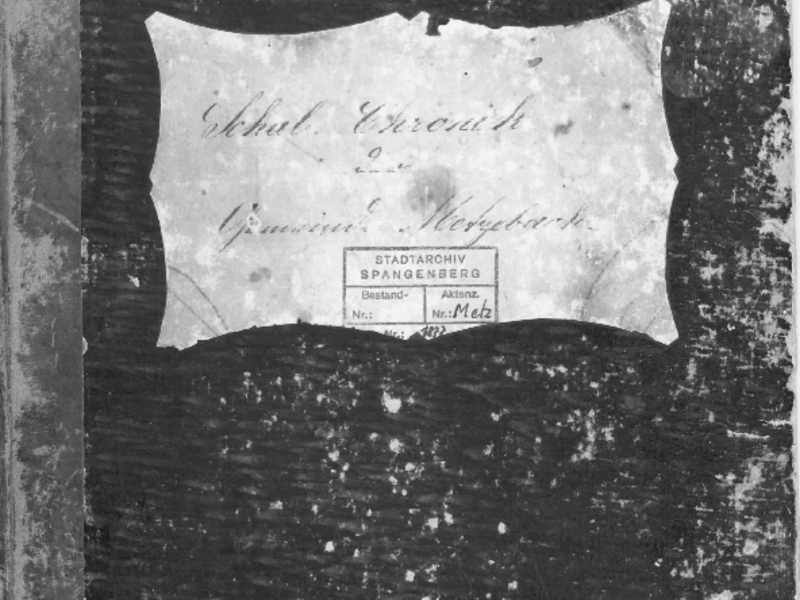 Schul Chronik
der
Gemeinde Metzebach.
STADTARCHIV
SPANGENBERG
Bestand- Aktenz.
Nr.: Nr.: Metz
Nr.: 1877